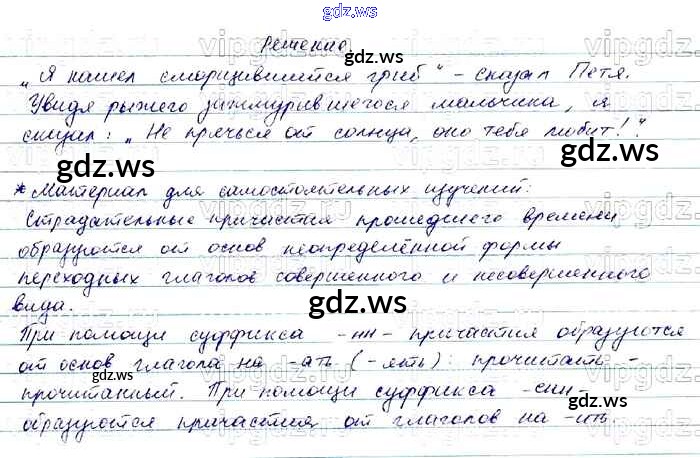 gdz.ws
Решение.
gdz.ws
„Я нашел сморщившийся гриб" - сказал Петя.
Увидя рыжего зажмурившегося мальчика, я
сказал: „Не прячься от солнца, оно тебя любит!".
gdz.ws
gdz.ws
* Материал для самостоятельных изучений:
Страдательные причастия прошедшего времени
образуются от основ неопределённой формы
переходных глаголов совершенного и несовершенного
вида.
gdz.ws
При помощи суффикса -нн- причастия образуются
от основ глагола на -ать (-ять): прочитать -
gdz.ws
прочитанный. При помощи суффикса -енн-
образуются причастия от глаголов на -ить.
gdz.ws
vipgdz.ru